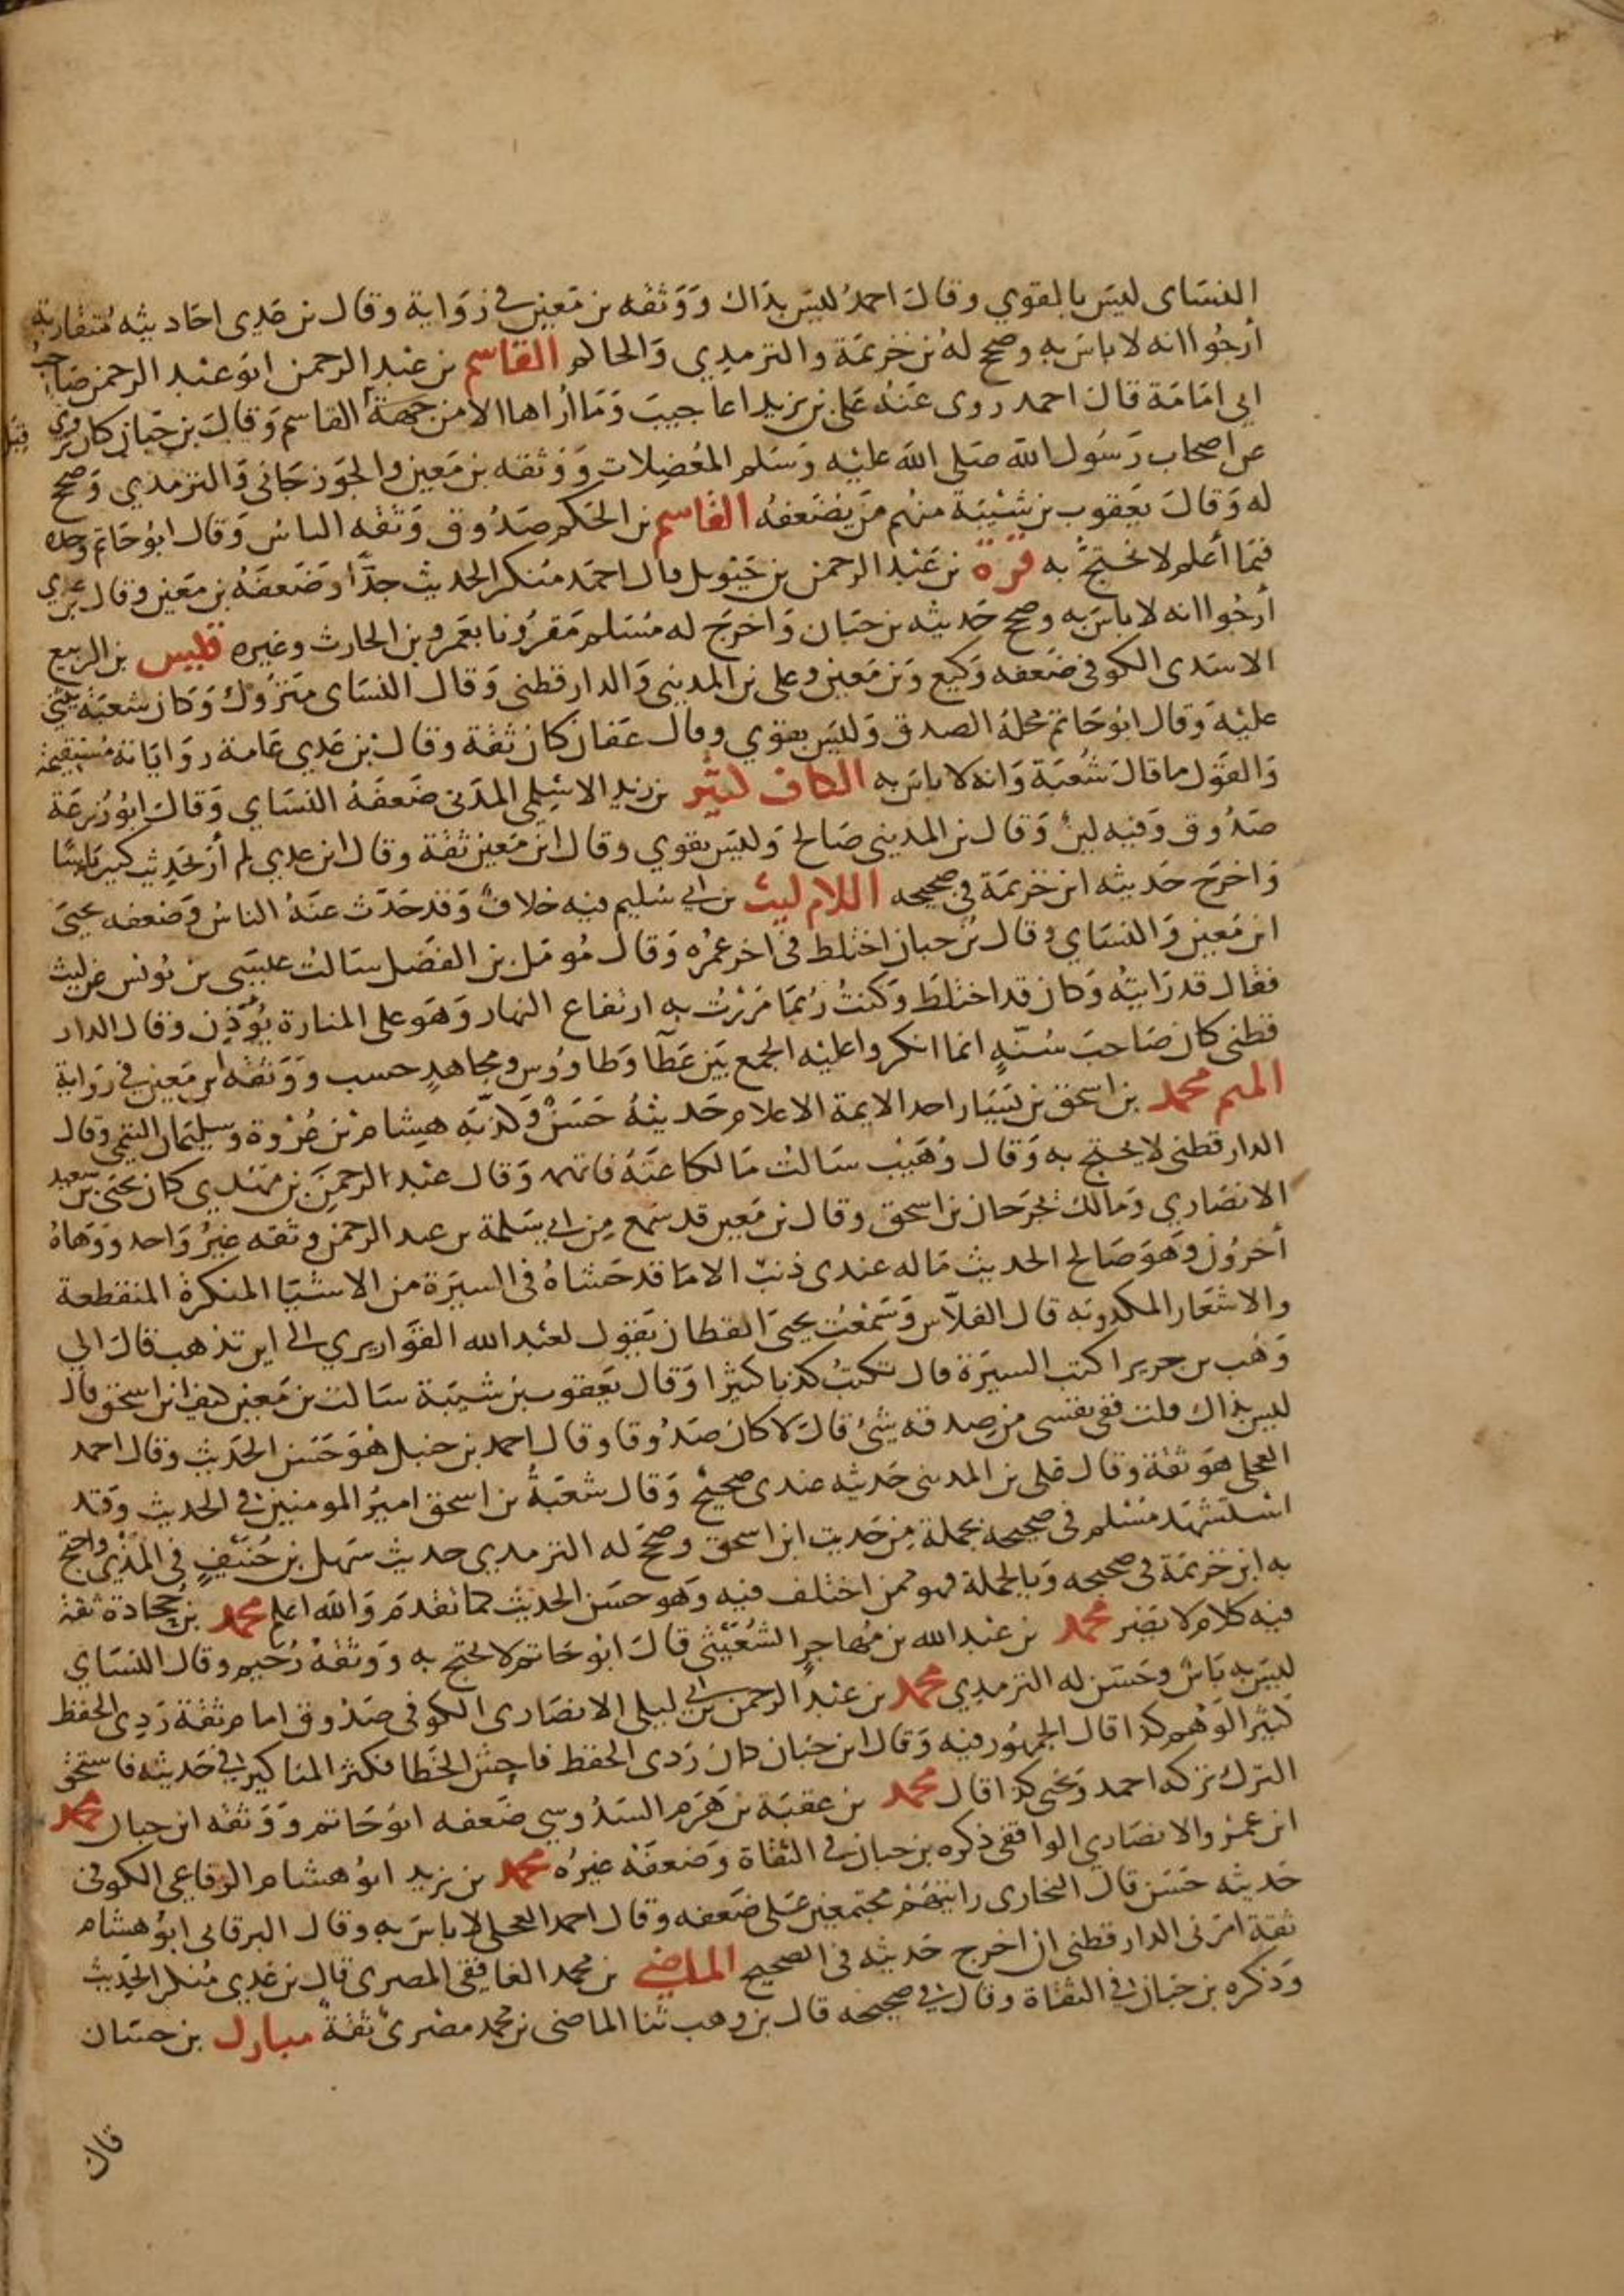 النسَاى ليسَ بالقوي وقالَ احمدُ ليسَ بذاك وَوَثقه بن مَعين في رَوَاية وقال بن عَدِى احَاديثه مُتقاربة
أرجُوا انه لا باسَ به وصحح له بن خزيمَة والترمذِي وَالحاكم القاسم بن عَبد الرحمن ابو عَبد الرحمن صَاحبُ
ابى امَامَة قال احمد روى عَنهُ عَلى بن يزيد اعاجيبَ وَمَا ارُاها الا من جهة القاسم وَقالَ بن حبَان كان يروى
عن اصحاب رَسُول الله صَلى الله عليْه وَسَلم المعُضِلات وَوَثقه بن مَعين والجَوزجَانى وَالترمذي وَصحح
له وَقالَ يعَقوب بن شيْبَة منهُم مَن يضَعفهُ القاسم بن الحَكم صَدُوق وَثقه الناسُ وَقال ابوُ حَاتم وحده
فيمَا أعْلم لا نحتجُ به قرة بن عَبْد الرحمن بن حَيْويل قال احمَد مُنكر الحديث جدَّا وَضَعفَهُ بن مَعين وقال بن عدي
أرجُوا انه لا باسَ به وصحح حَديثه بن حبَان وَاخرَج له مُسَلم مَقرُونا بعَمرو بن الحارث وغيره قيس بن الربيع
الاسَدى الكوفى ضَعفه وَكيع وَبن مَعين وعلى بن المديني وَالدارقطنى وَقال النسَاى متَروُك وَكان شعبَة يثنى
عليْه وَقال ابوُ حَاتم محلهُ الصدق وَليسَ بقوي وقال عَفان كان ثقة وقال بن عَدِي عَامة رواياته مُستقيمة
وَالقوَل ما قالَ شُعبَة وَانه لا باسَ به الكاف كثير بن زيد الاسَلمي المدَنى ضَعفَهُ النسَاي وَقالَ ابوُ زُرعَة
صَدُوق وَفيه لينٌ وَقال بن المدينى صَالح وَليسَ بقوي وقال ابن مَعين ثقة وقال ابن عدي لم أرَ بحَديث كثير باسًا
وَاخرجَ حَديثه ابن خزيمَة في صحيحه اللام ليث بن ابي سُليم فيه خلافٌ وَقد حَدَّث عنَهُ الناسُ وَضعفه يحيىَ
ابن مَعين وَالنسَاي وقال بن حبان اختلط في اخر عمُره وَقال مُومَل بن الفضَل سَالتُ عيسَى بن يونس عن ليث
فقال قد رَايتهُ وَكان قد اختلَط وَكنتُ رُبمَا مَررْتُ به ارتفاع النهار وَهَو على المنارة يُؤذِن وقال الدار
قطنى كان صَاحبَ سُنّةٍ انما انكروا عليْه الجمع بَين عَطآ وَطاووُس ومجاهدٍ حسب وَوَثقه بن مَعين في رِوَاية
الميم محمد بن اسحق بن يَسَار احد الايمة الاعلام حَديثهُ حَسَنٌ وَكذبَه هشام بن عُرْوة وسُليمَان التيمى وقال
الدارقطنى لا يحتج به وَقال وُهَيْب سَالتُ مَالكا عَنهُ فاتهمه وَقال عبْد الرحمَن بن مَهَدي كان يَحيىَ بن سَعيد
الانصَاري وَمالك يُجرَحان بن اسحق وقال بن مَعين قد سَمع من ابي سَلمة بن عبد الرحمن وثقه غيرُ وَاحد وَوَهاهُ
أخروُن وَهَو صَالح الحديث مَاله عندى ذنبٌ الا ما قد حَشاهُ في السيرَة من الاشيَا المنكرة المنقطعة
والاشعَار المكذوبَه قال الفلاّس وَسَمْعتُ يحيىَ القطان يَقوُل لعبْد الله القوَاريري الى اين تذهب قالَ الى
وَهْب بن جرير اكتب السيَرة قال تكتُبُ كذبا كثيرًا وَقال يعَقوب بن شيبَة سَالت بن مَعين كيف ابن اسحق قال
ليسَ بذاك قلت ففي نفسى من صِدقه شئ قالَ لا كان صَدُوقا وقال احمد بن حنبل هُو حَسَن الحَديث وقال احمد
العجلى هوَ ثقة وقال على بن المدينى حَديثه عندى صحيحٌ وَقال شعبَةُ بن اسحق اميرُ المومنين في الحديث وَقد
اسَتشهَد مُسْلم في صحيحه بجملة مِن حَديث ابن اسحق وصحَح له الترمدي حديث سَهل بن حُنَيْفٍ في المَذْى واحتج
به ابن خزيمَة فى صحيحه وَبالجملة فهو ممن اختلف فيه وَهو حسَن الحديث كما تقدمَ وَالله اعلم محمد بن جحادة ثقة
فيه كلام لا يضر محمد بن عَبْد الله بن مُهاجرٍ الشُعَيْثى قالَ ابوُ حَاتم لا يحتج به وَوَثقهُ دُحَيم وقال النسَاي
ليسَ به باَسٌ وحَسَّن له الترمذِي محمد بن عَبْد الرحمن بن ابي ليلى الانصَارى الكوفى صَدُوق امام ثقة رَدِى الحفظ
كثير الوَهم كذا قال الجمهُور فيه وَقال ابن حبَان كان رَدى الحفظ فاحِشَ الخطا فكثر المناكير في حَديثه فاستحق
الترك تركه احمد وَيحَيى كذا قال محمد بن عقبَة بن هَرم السَدُوسي ضَعفه ابوُ حَاتم وَوَثقه ابن حبان محمد
ابن عَمْرو الانصَاري الواقفى ذكره بن حبان في الثقاة وَضعفَهْ غيرُه محمد بن يزيد ابوُ هشام الرفاعي الكوفى
حَديثه حَسَن قالَ البخارى رايتهُم مجتمعين عَلى ضَعفه وقال احمد العجلى لا باسَ به وقال البرقانى ابوُ هشام
ثقة امَرنى الدارقطنى ان اخرج حَديثه في الصحيح الماضي بن محمد الغافقى المصرى قالَ بن عَدِي مُنكر الحَديث
وَذكره بن حبَان في الثقاة وقال في صحيحه قال بن وهب ثنا الماضى بن محمد مصْرىٌ ثقةٌ مبارك بن حسَان
قال